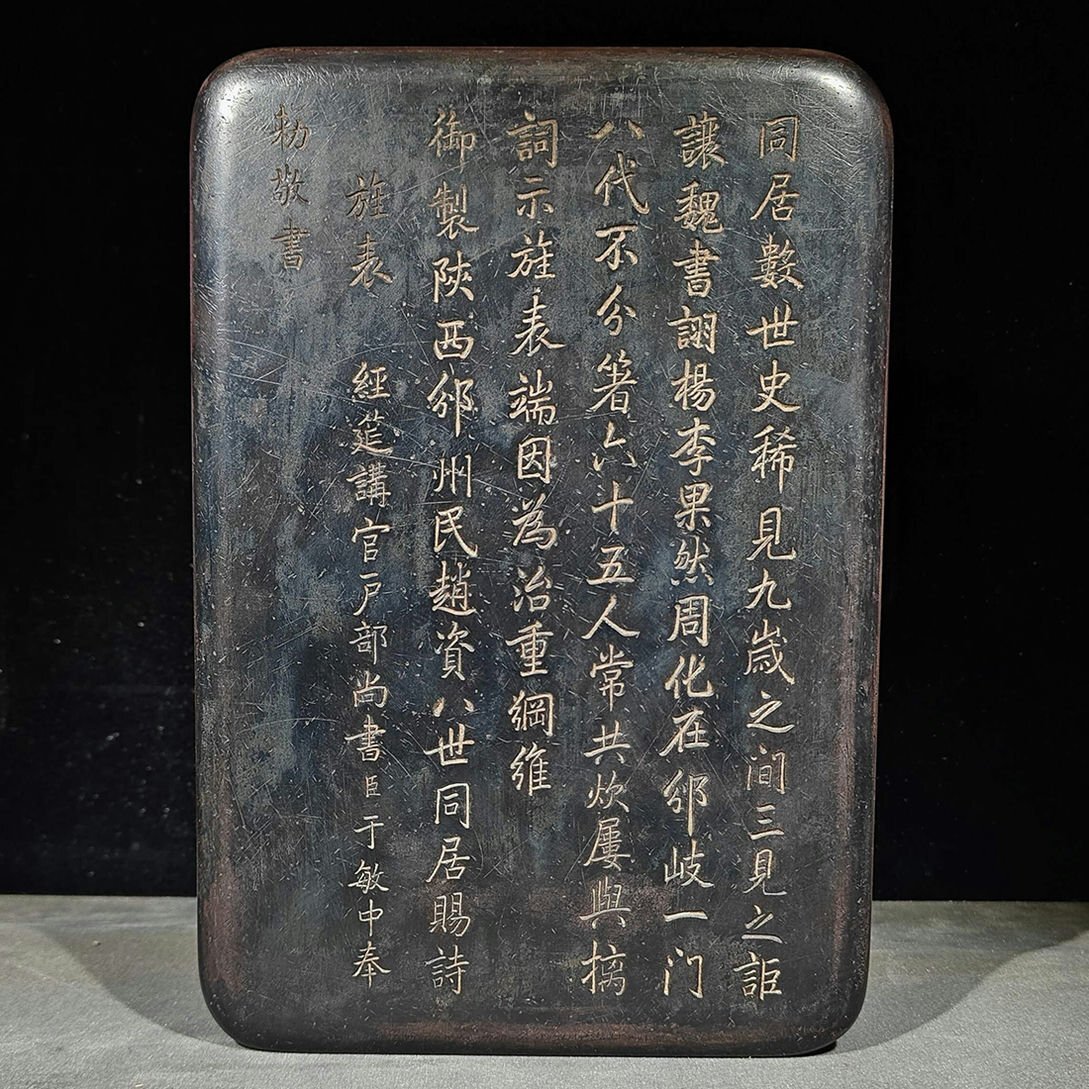 同居數世史稀見九歲之间三見之詎
讓魏書詡楊李果然周化在邠岐一门
八代不分箸六十五人常共炊屢與摛
詞示旌表端因為治重綱維
御製陝西邠州民趙資八世同居賜詩
旌表 經筵講官户部尚書臣于敏中奉
勅敬書